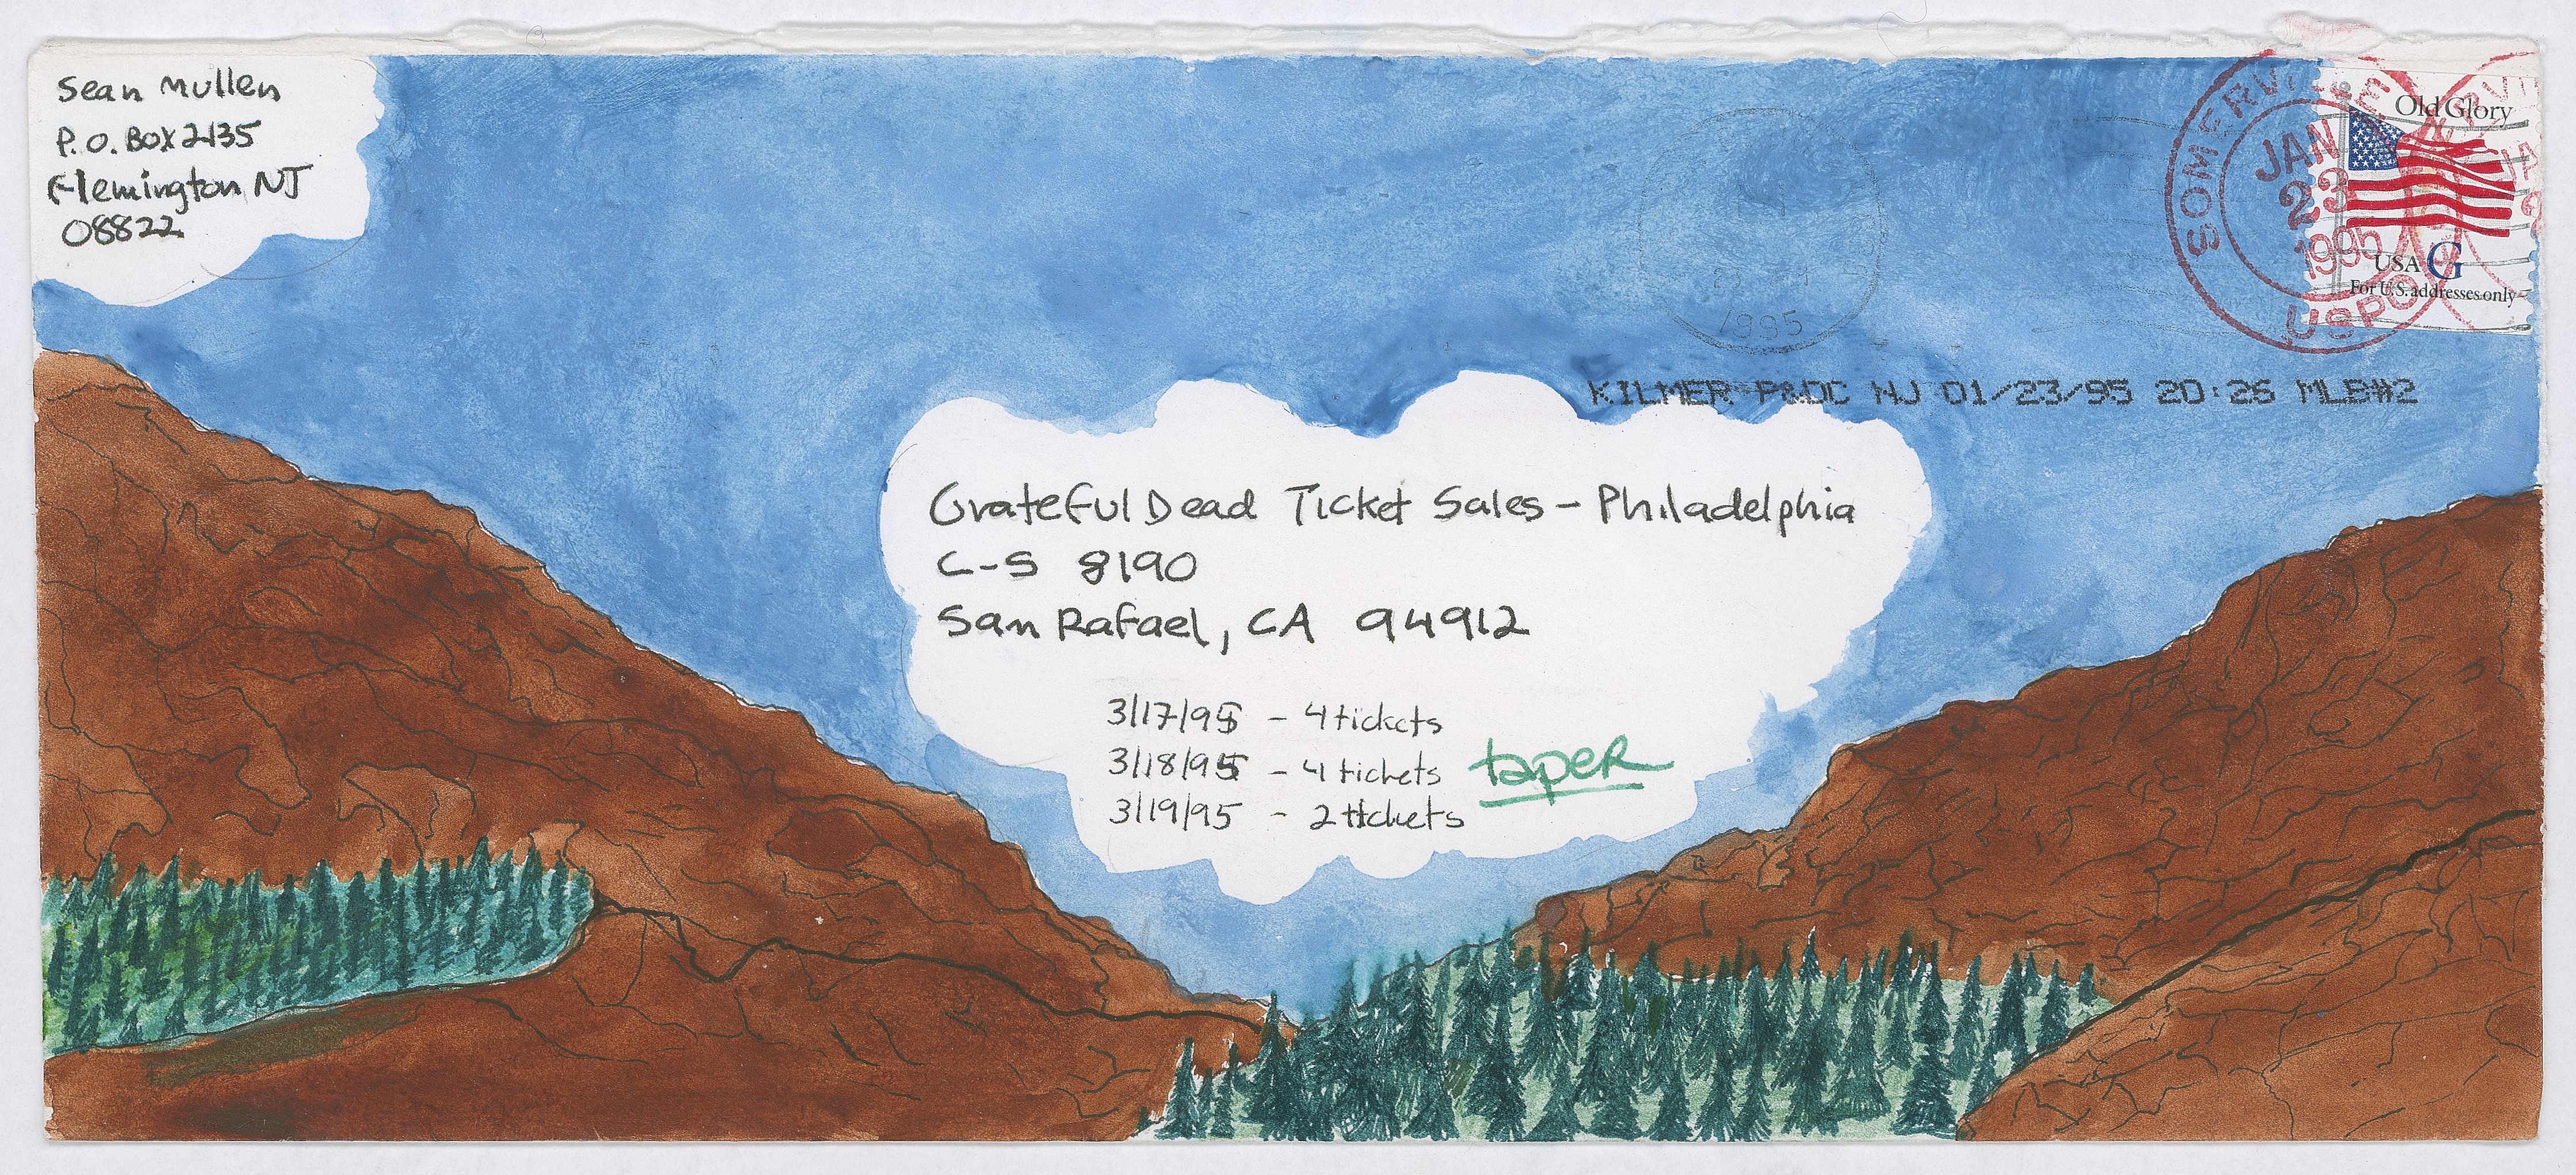 Sean Mullen
P.O. Box 2135
Flemington, NJ
08822
SOMERVILLE
JAN
23
1995
USPO
Old Glory
USA G
For U.S. addresses only
1995
KILMER P&DC NJ 01/23/95 20:26 MLB#2
Grateful Dead Ticket Sales - Philadelphia
C-S 8190
San Rafael, CA 94912
3/17/95 - 4 tickets
3/18/95 - 4 tickets taper
3/19/95 - 2 tickets